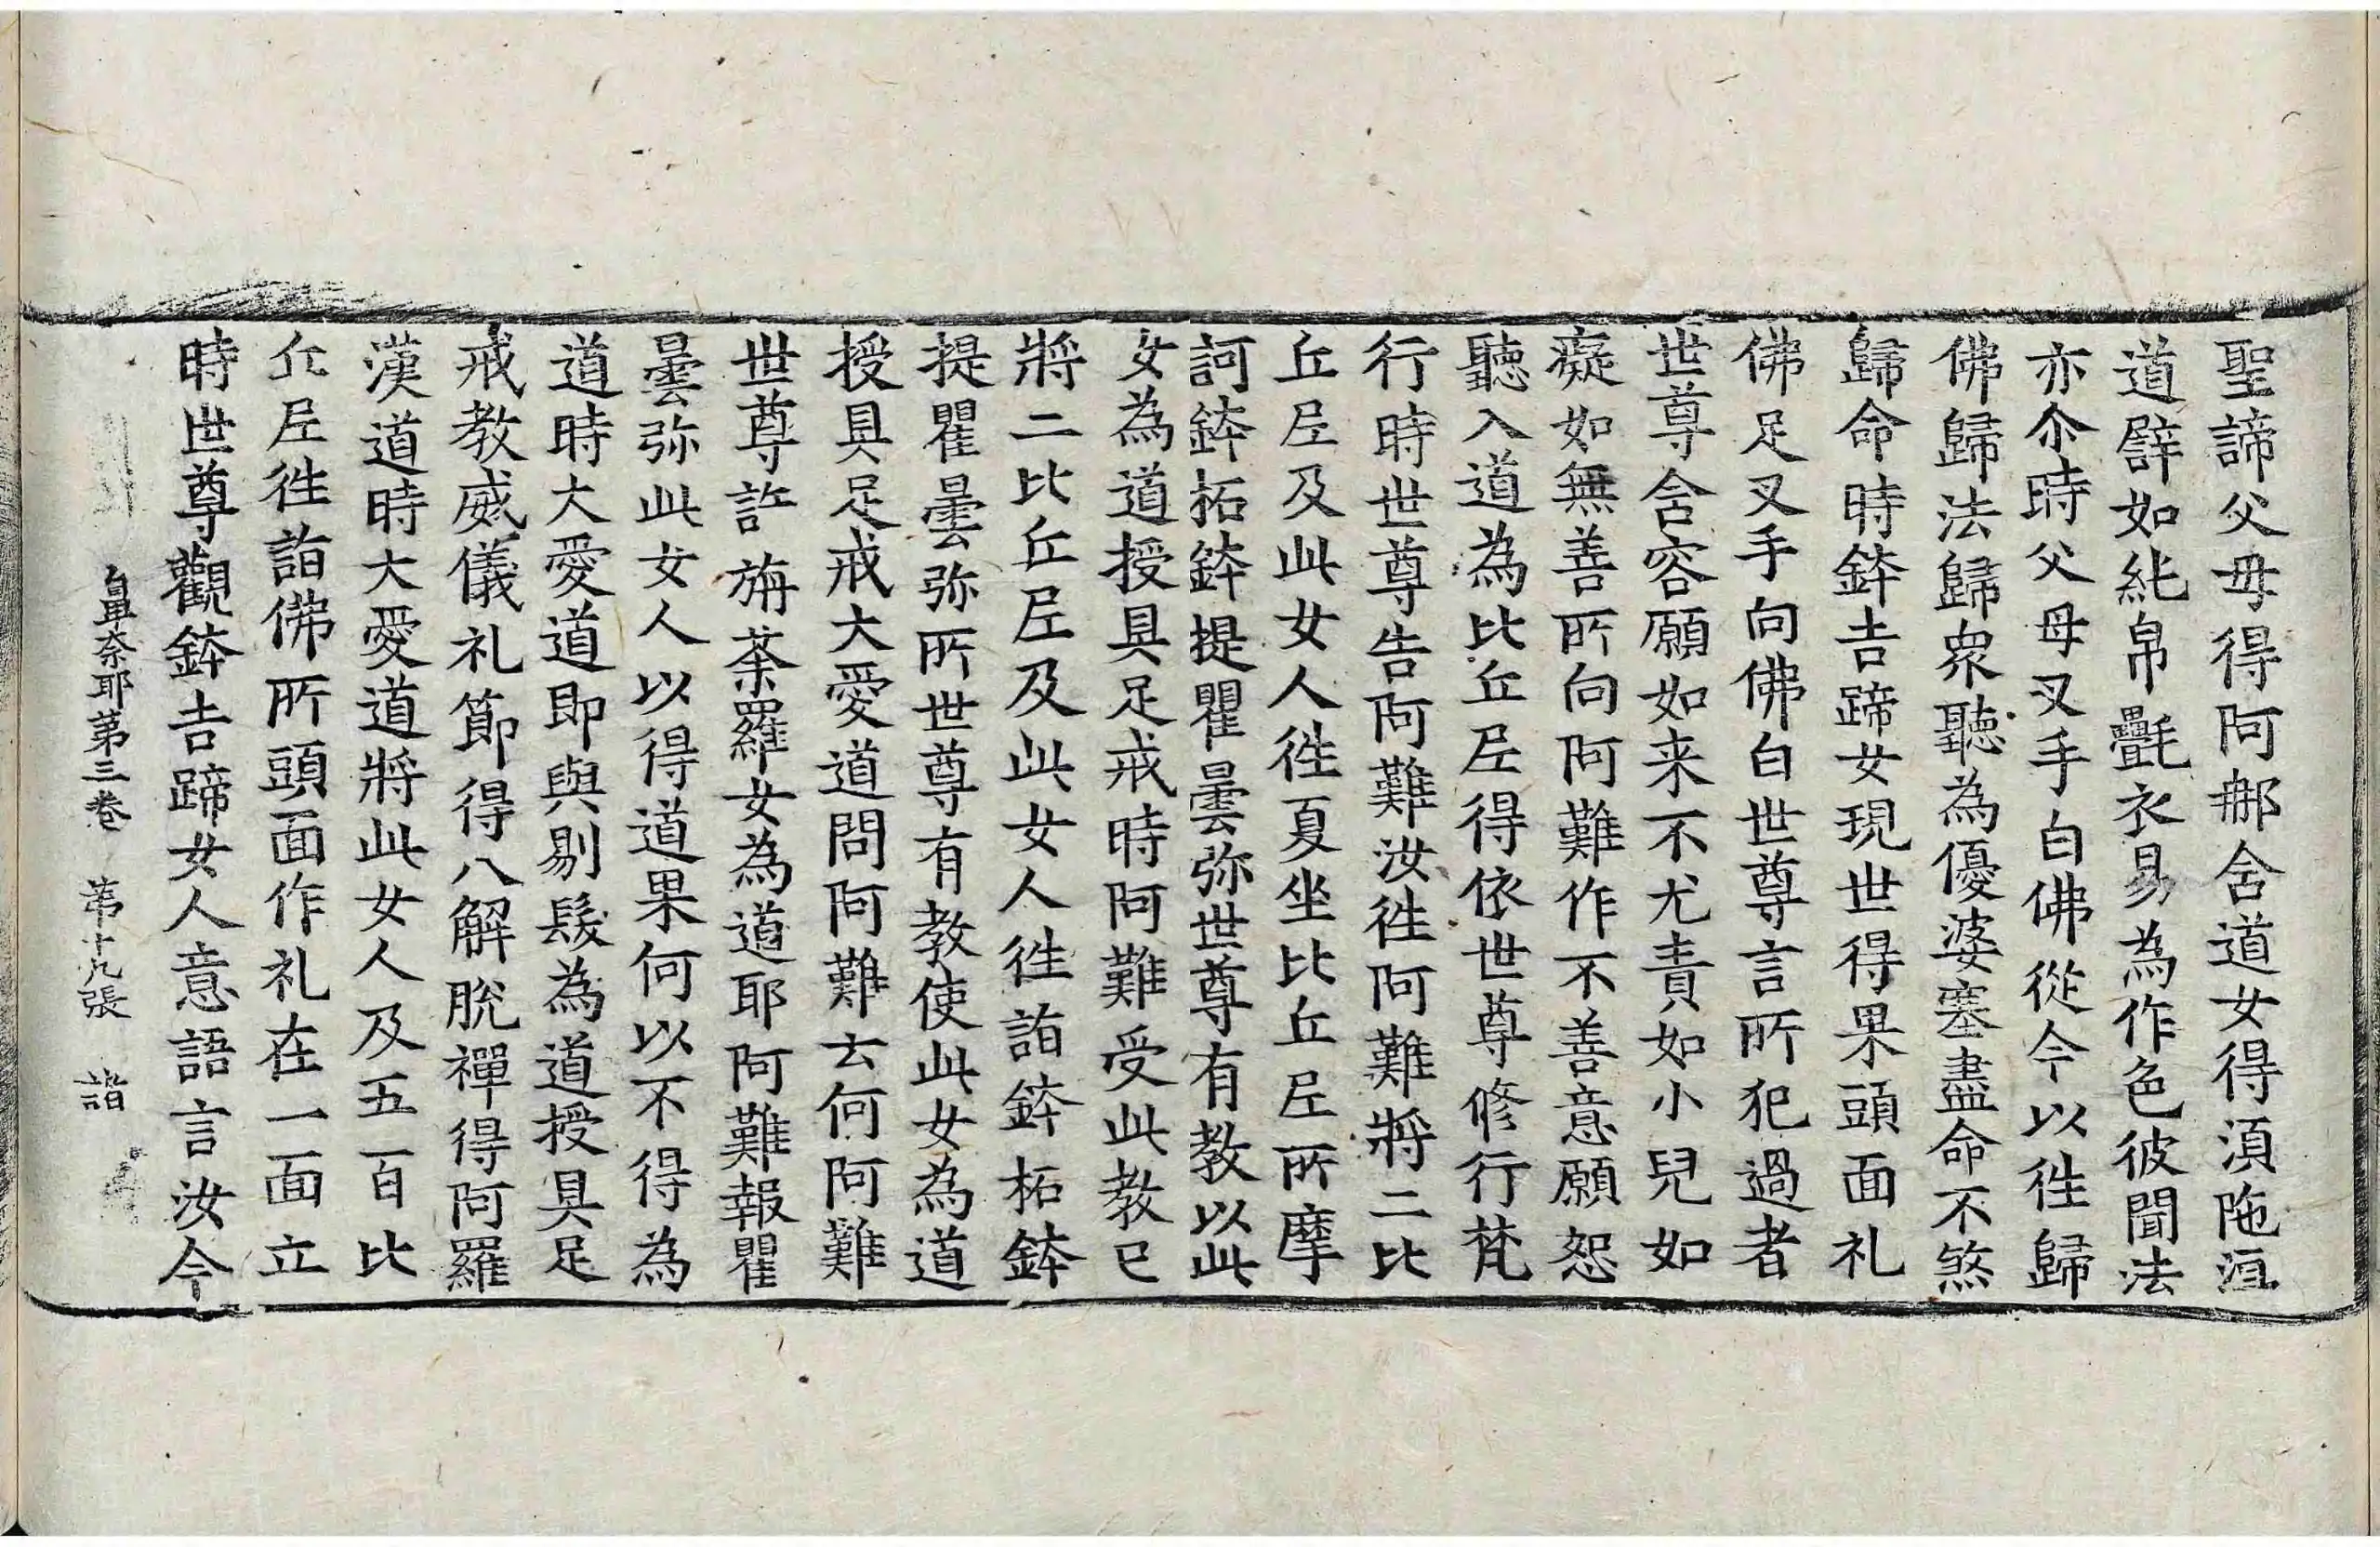 聖諦父母得阿那舍道女得湏陁洹
道譬如純帛氎衣易為作色彼聞法
亦尒時父母叉手白佛從今以徃歸
佛歸法歸衆聽為優婆塞盡命不煞
歸命時鉢吉蹄女現世得果頭面礼
佛足叉手向佛白世尊言所犯過者
世尊含容願如来不尤責如小兒如
癡如無善所向阿難作不善意願恕
聽入道為比丘尼得依世尊修行梵
行時世尊告阿難汝徃阿難將二比
丘尼及此女人徃夏坐比丘尼所摩
訶鉢柘鉢提瞿曇弥世尊有教以此
女為道授具足戒時阿難受此教已
將二比丘尼及此女人徃詣鉢柘鉢
提瞿曇弥所世尊有教使此女為道
授具足戒大愛道問阿難云何阿難
世尊許旃荼羅女為道耶阿難報瞿
曇弥此女人以得道果何以不得為
道時大愛道即與剔髮為道授具足
戒教威儀礼節得八解脫禪得阿羅
漢道時大愛道將此女人及五百比
丘尼徃詣佛所頭面作礼在一面立
時世尊觀鉢吉蹄女人意語言汝今
鼻奈耶第三卷 第十九張 詣